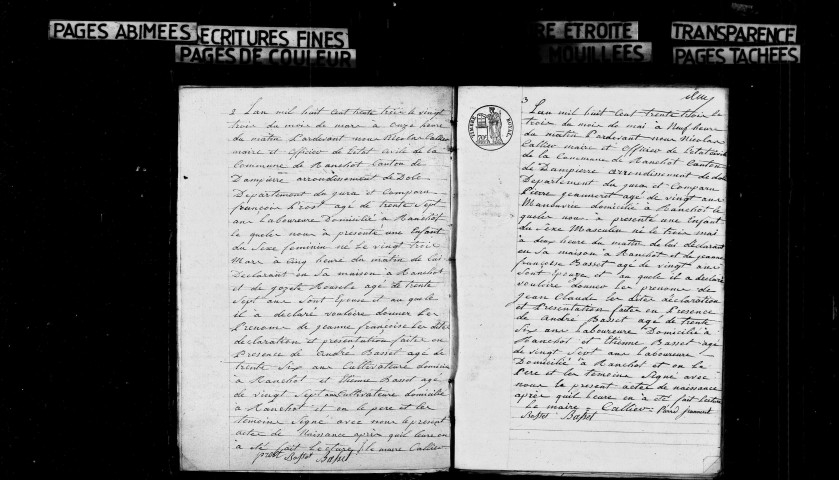 PAGES ABIMEES
ECRITURES FINES
PAGES DE COULEUR
RE ETROITE
MOUILLEES
TRANSPARENCE
PAGES TACHEES
2 L'an mil huit cent trente trois le vingt
trois du mois de mars à onze heure
du matin Pardevant nous Nicolas Callier
maire et officier de l'état civile de la
Commune de Ranchot Canton de
Dampierre arrondissement de Dole
Département du jura et Comparu
françois Prost agé de trente Sept
ans laboureure Domicilié à Ranchot
le queler nous à présenté une Enfant
du Sexe féminin né Le vingt trois
Mars à cinq heure du matin de lui
Déclarant en Sa maison à Ranchot
et de gozete agé de trente
Sept ans Sont Epouse et au quele
il à déclaré vouloire donner les
Prenoms de jeanne françoise Les dites
déclaration et présentation faites en
Presence de andré Basset agé de
trente Six ans Cultivateure domicilié
à Ranchot et Etienne Basset agé
de vingt Sept ans Cultivateure domicilié
à Ranchot et on le père et les
témoins Signé avec nous le présent
actes de Naissance après quil leure en
à été fait Lecture le maire Callier
prost Basset Basset
3
L'an mil huit cent trente trois le
trois du mois de mai à Neuf heure
du matin Pardevant nous Nicolas
Callier maire et officier de l'état civile
de la Commune de Ranchot Canton
de Dampierre arrondissement de dole
Département du jura et Comparu
Pierre jeanneret agé de vingt ans
Manouvrié domicilié à Ranchot le
queler nous à présenté une Enfant
du Sexe Masculin né le trois mai
à deux heure du matin de lui déclarant
en Sa maison à Ranchot et de jeanne
françoise Basset agé de vingt ans
Sont Epouze et au quele il a déclaré
vouloire donner les prenoms de
jean Claude Les dites déclaration
et Présentation faites en Presence
de andré Basset agé de trente
Six ans Laboureure Domicilié à
Ranchot et Etienne Basset agé
de vingt Sept ans laboureure
Domicilié à Ranchot et on le
Père et les témoins Signé avec
nous le présent actes de naissance
après quil leure en à été fait lecture
Le maire Callier
Basset Basset